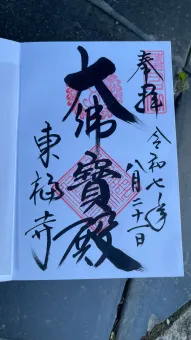 奉拝
令和七年
八月二十一日
大佛寶殿
東福寺